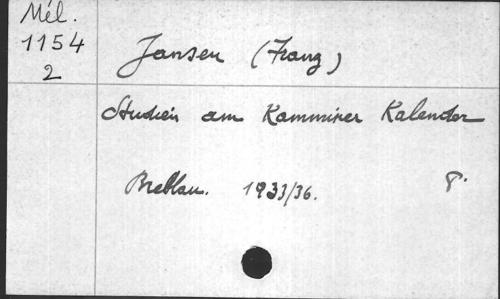 Mél.
1154
2
Jansen (Franz)
Studien am Kamminer Kalender
Breslau. 1933/36. 8°.